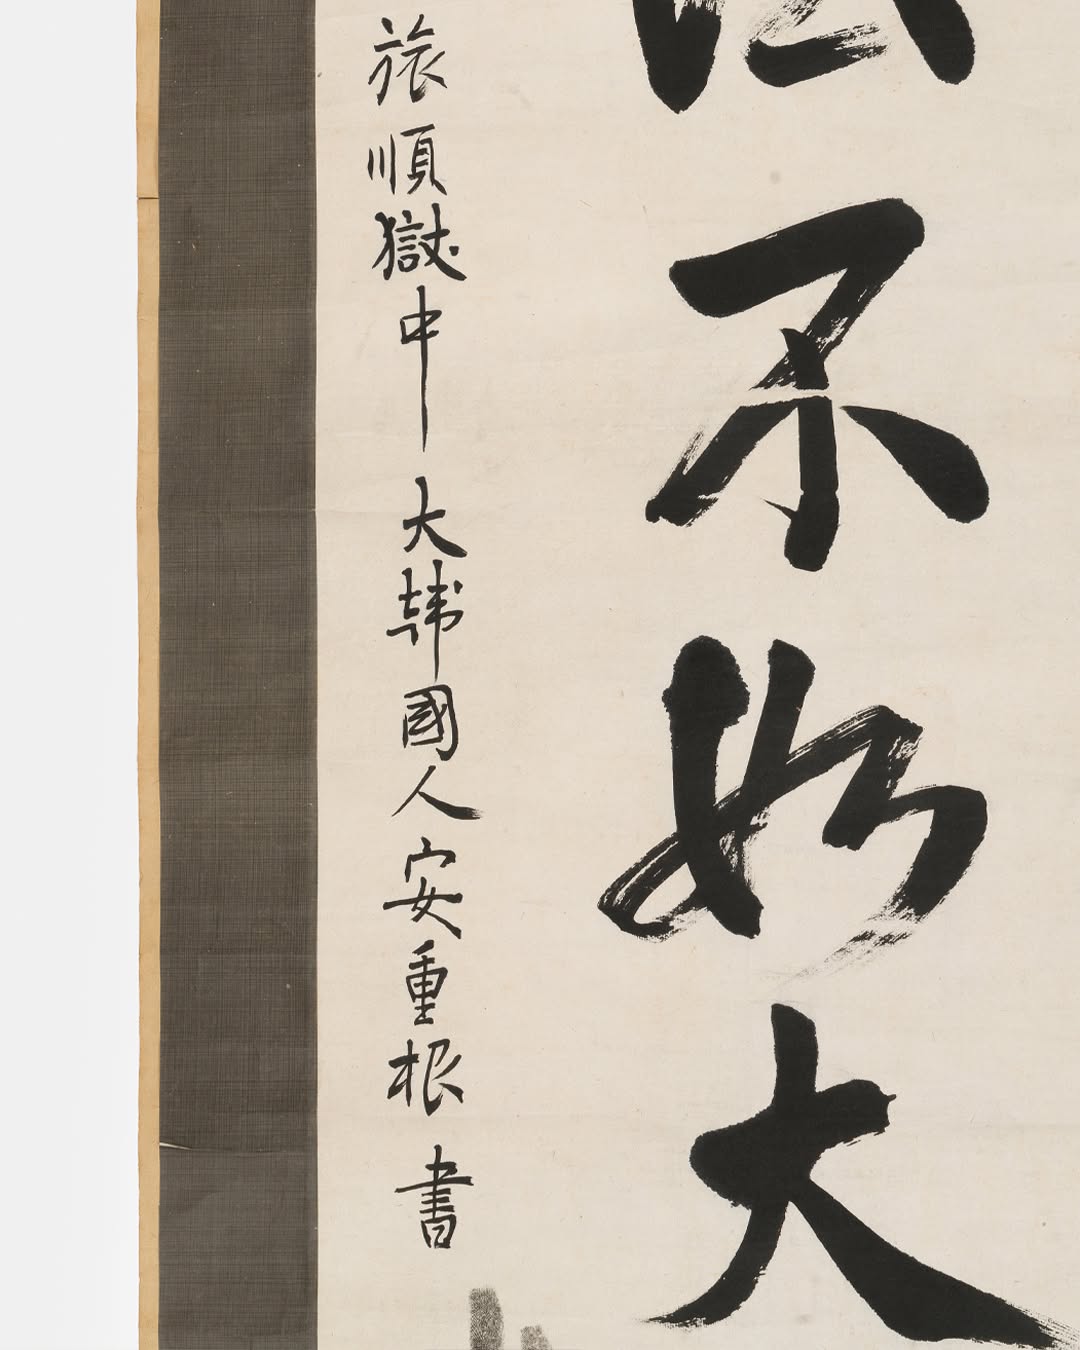 不如大
旅順獄中 大韓國人 安重根 書